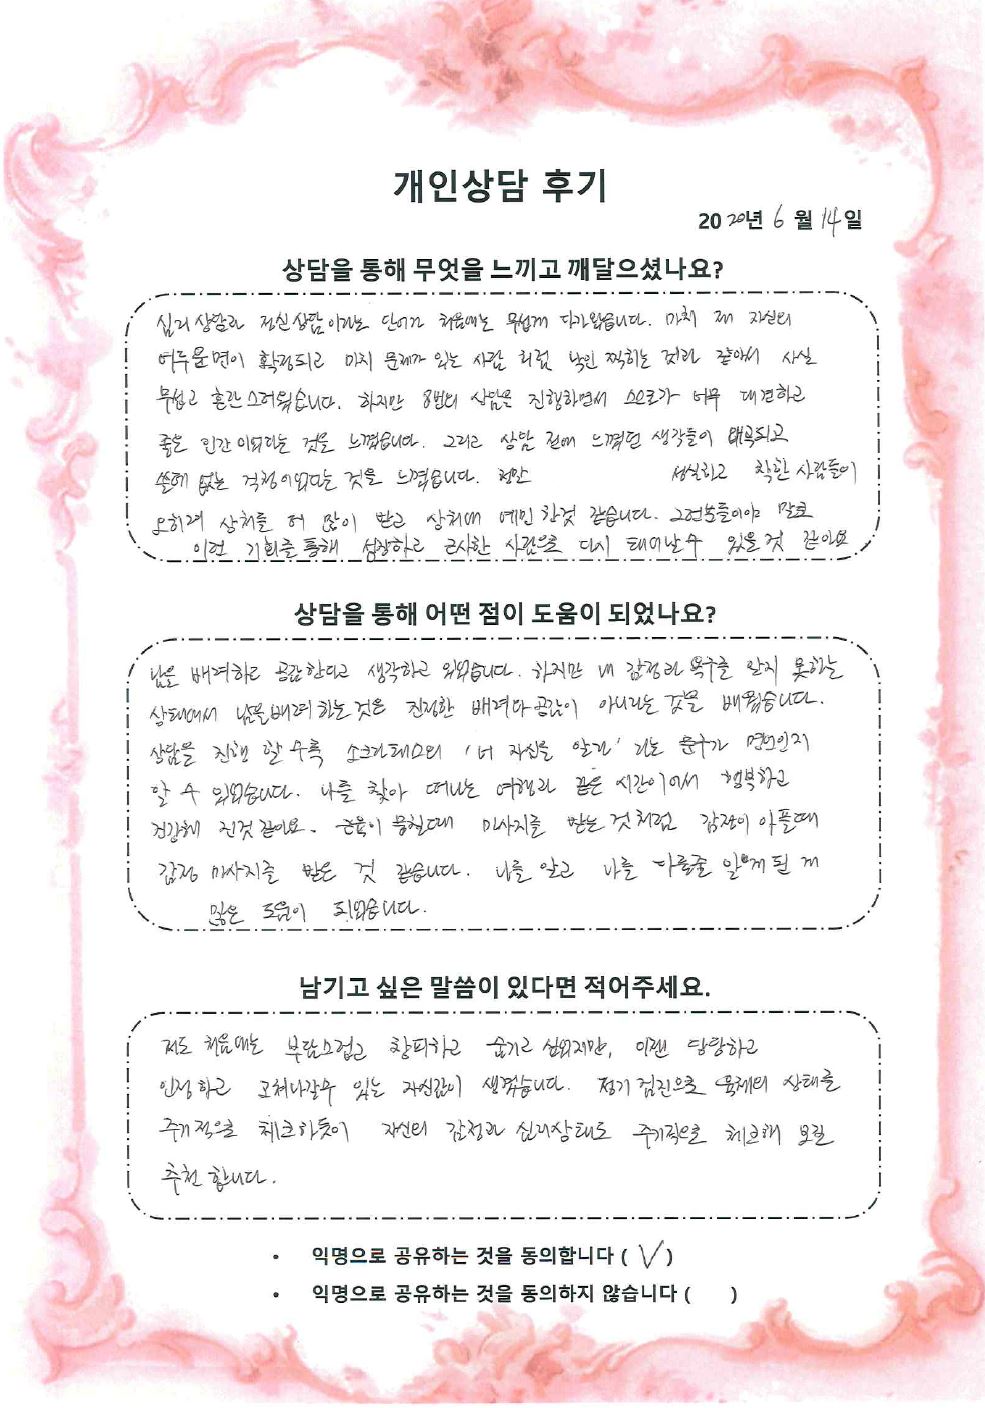 개인상담 후기
2020년 6월 14일
상담을 통해 무엇을 느끼고 깨달으셨나요?
심리상담과 정신상담이라는 단어가 처음에는 무섭게 다가왔습니다. 마치 제 자신의
어두운면이 확정되고 마치 문제가 있는 사람 처럼 낙인 찍히는 것과 같아서 사실
무섭고 혼란스러웠습니다. 하지만 8번의 상담을 진행하면서 스스로가 너무 대견하고
좋은 인간이었다는 것을 느꼈습니다. 그리고 상담 전에 느꼈던 생각들이 왜곡되고
쓸데 없는 걱정이었다는 것을 느꼈습니다. 정말 성실하고 착한 사람들이
오히려 상처를 더 많이 받고 상처에 예민한것 같습니다. 그런분들이야 말로
이런 기회를 통해 성장하고 근사한 사람으로 다시 태어날수 있을것 같아요
상담을 통해 어떤 점이 도움이 되었나요?
남을 배려하고 공감한다고 생각하고 있었습니다. 하지만 내 감정과 욕구를 알지 못하는
상태에서 남을배려 하는것은 진정한 배려나 공감이 아니라는 것을 배웠습니다.
상담을 진행 할 수록 소크라테스의 '너 자신을 알라' 라는 문구가 명언인지
알 수 있었습니다. 나를 찾아 떠나는 여행과 같은 시간이어서 행복하고
건강해 진것 같아요. 근육이 뭉칠때 마사지를 받는 것처럼 감정이 아플때
감정 마사지를 받은 것 같습니다. 나를 알고 나를 다룰줄 알게 될 게
많은 도움이 되었습니다.
남기고 싶은 말씀이 있다면 적어주세요.
저도 처음에는 부담스럽고 창피하고 숨기고 싶었지만, 이젠 당당하고
인정하고 고쳐나갈수 있는 자신감이 생겼습니다. 정기검진으로 육체의 상태를
주기적으로 체크하듯이 자신의 감정과 심리상태도 주기적으로 체크해 보길
추천 합니다.
• 익명으로 공유하는 것을 동의합니다 ( V )
• 익명으로 공유하는 것을 동의하지 않습니다 ( )